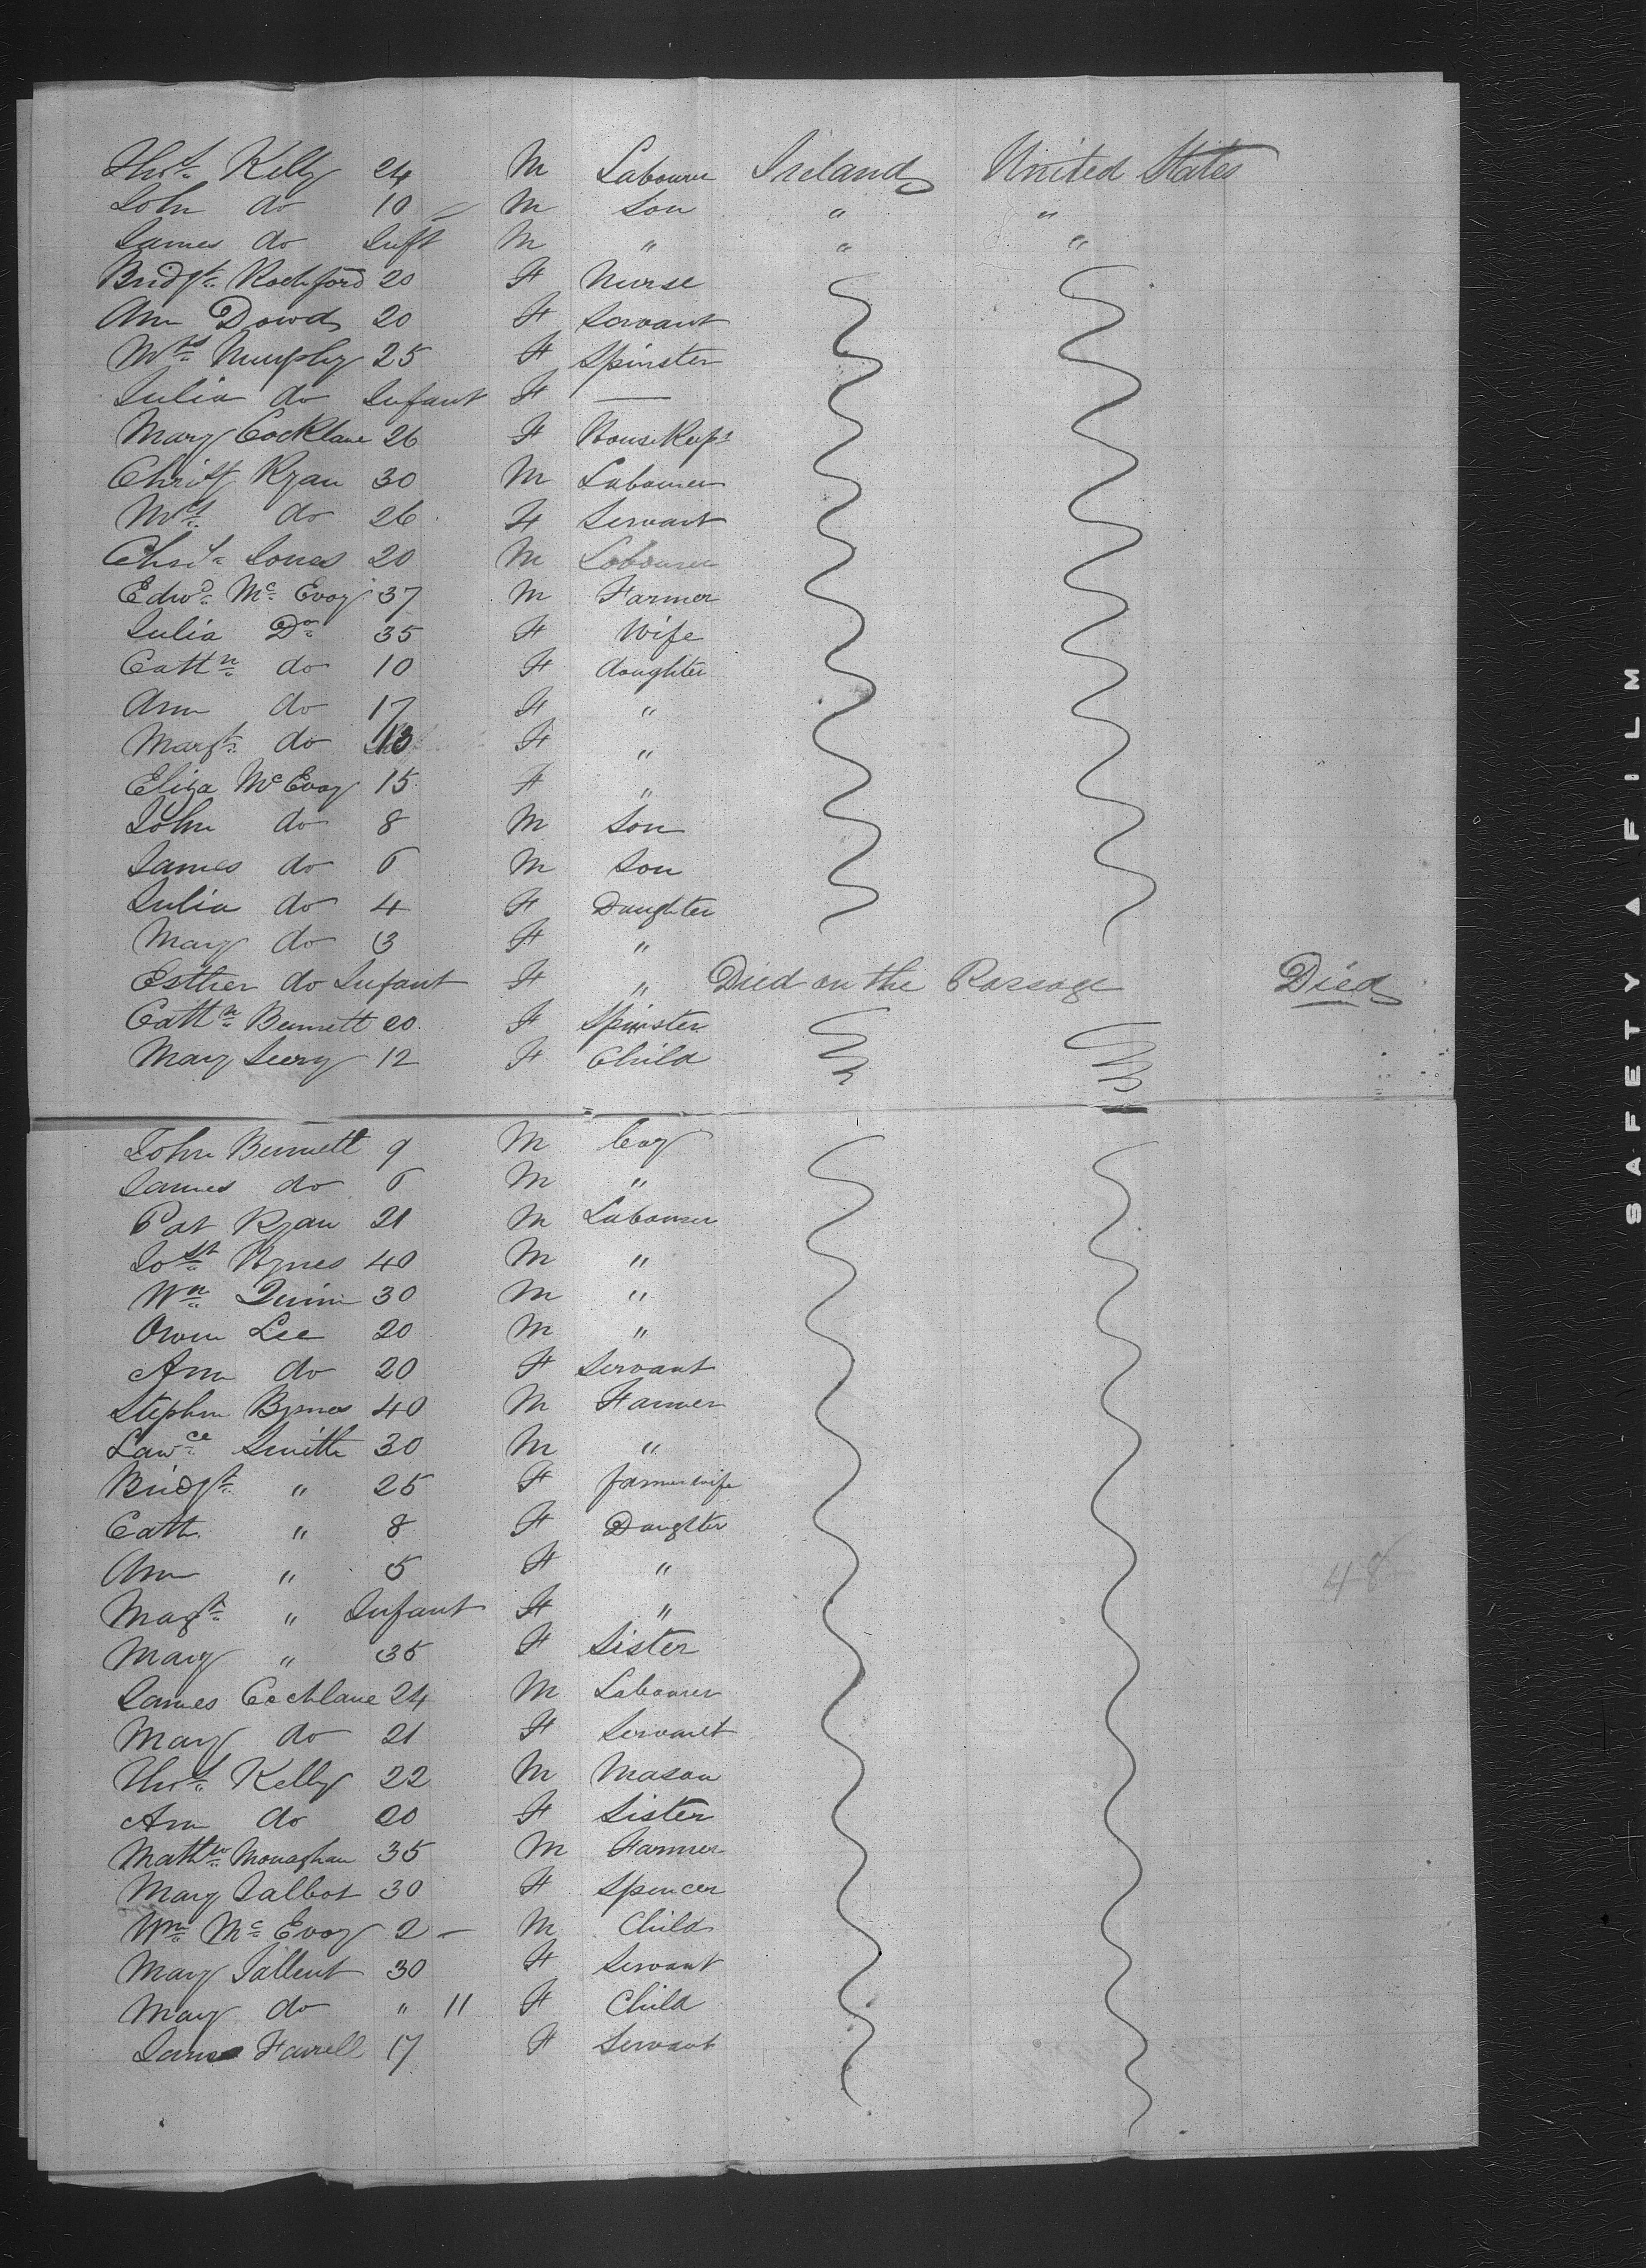 Thos. Kelly 24 M Labourer Ireland United States
John do 10 M Son " "
James do Inft M " " "
Bridgt. Rochford 20 F Nurse
Ann Dowd 20 F Servant
Mrs. Murphy 25 F Spinster
Julia do Infant F —
Mary Cocklane 26 F HouseKeepr
Christ Ryan 30 M Labourer
do 26 F Servant
Christ. Jones 20 M Labourer
Edwd. Mc. Evoy 37 M Farmer
Julia Do. 35 F Wife
Cathn. do 10 F daughter
Ann do 17 F "
Margt. do 13 F "
Eliza McEvoy 15 F "
John do 8 M Son
James do 6 M Son
Julia do 4 F Daughter
Mary do 3 F "
Esther do Infant F " Died on the Passage Died
Cathn. Bennett 20 F Spinster
Mary Seery 12 F Child
John Bennett 9 M boy
James do 6 M "
Pat Ryan 21 M Labourer
Josh. Byrnes 40 M "
Wm. Quinn 30 M "
Owen Lee 20 M "
Ann do 20 F Servant
Stephen Byrnes 40 M Farmer
Lawce. Smith 30 M "
Bridgt. " 25 F farmerwife
Cath. " 8 F Daughter
Ann " 5 F "
Magt. " Infant F "
Mary " 35 F Sister
James Cocklane 24 M Labourer
Mary do 21 F Servant
Thos. Kelly 22 M Mason
Ann do 20 F Sister
Matthw. Monaghan 35 M Farmer
Mary Talbot 30 F Spencer
Wm. Mc. Evoy 2 — M Child
Mary Tallent 30 F Servant
Mary do " 11 F Child
James Farrell 17 F Servant
48
SAFETY A FILM